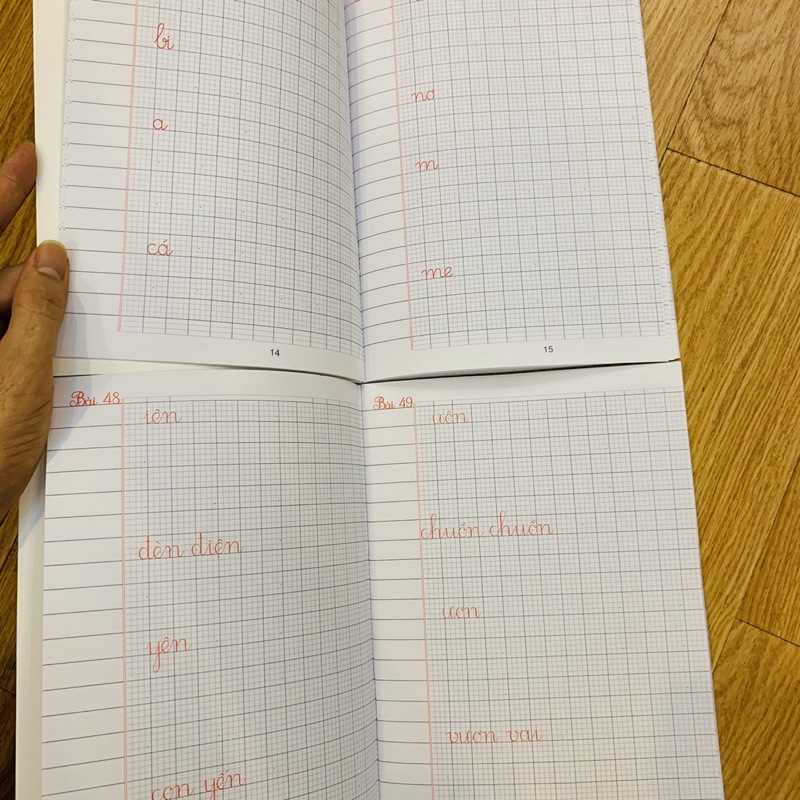 bi
a
cá
14
no
m
me
15
Bài 48
iên
đèn điện
yên
con yến
Bài 49
uôn
chuồn chuồn
ươn
vươn vai